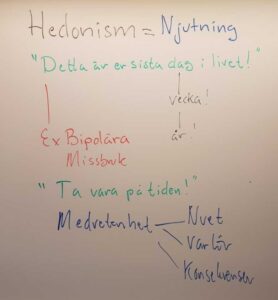 Hedonism = Njutning
"Detta är er sista dag i livet!"
vecka!
år!
Ex Bipolära
Missbruk
"Ta vara på tiden!"
Medvetenhet
Nuet
Varför
Konsekvenser